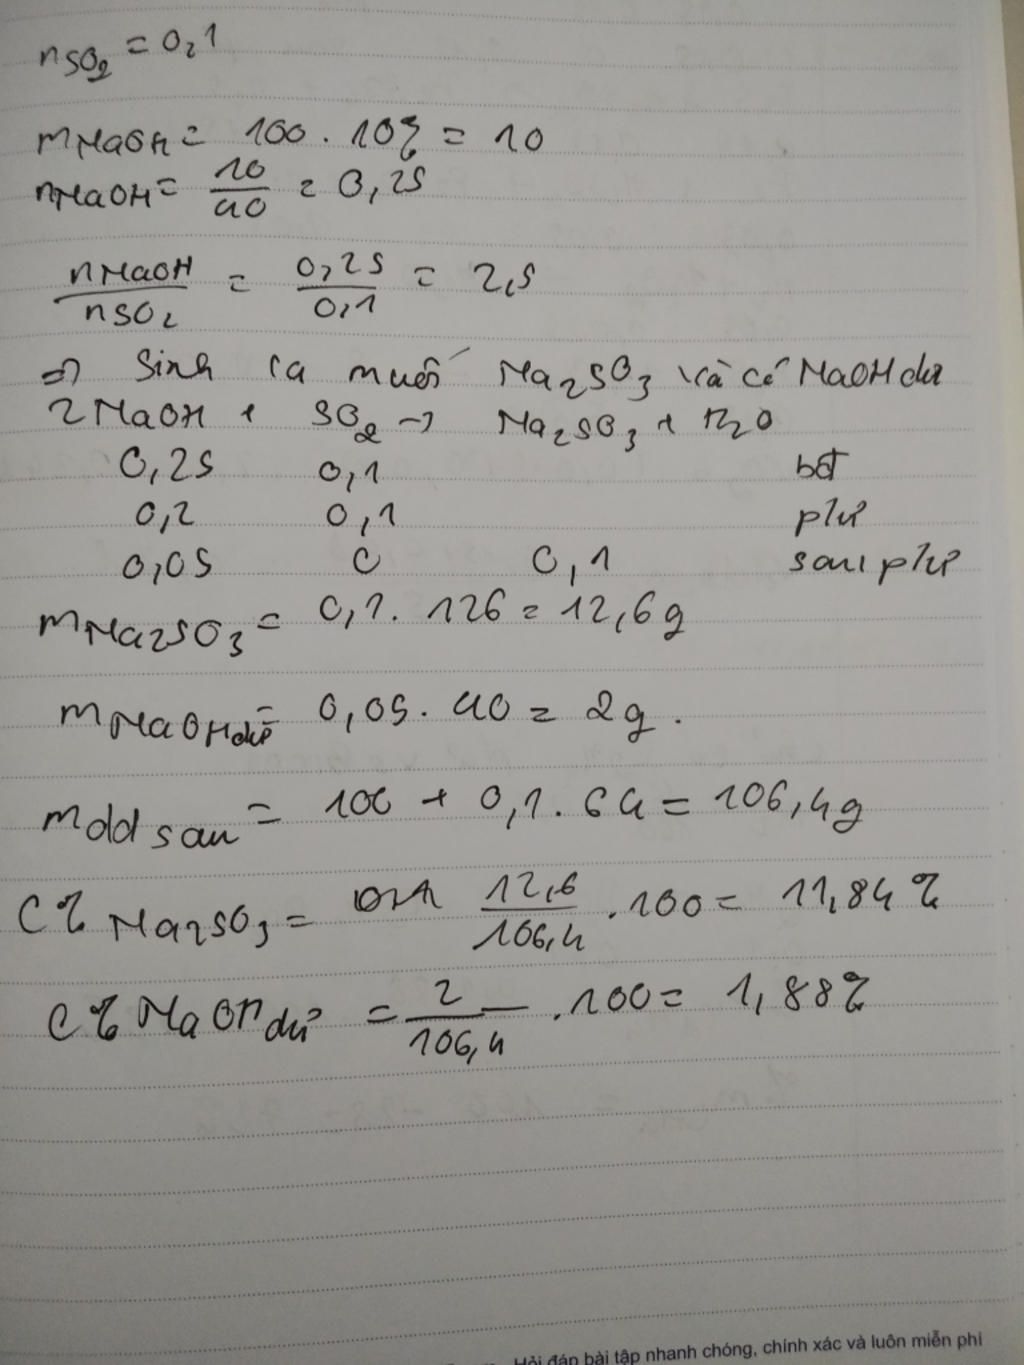 nSO2 = 0,1
mNaOH = 100 . 10% = 10
nNaOH = 10/40 = 0,25
nNaOH/nSO2 = 0,25/0,1 = 2,5
=> Sinh ra muối Na2SO3 và có NaOH dư
2NaOH + SO2 -> Na2SO3 + H2O
0,25 0,1 bđ
0,2 0,1 pứ
0,05 0 0,1 sau pứ
mNa2SO3 = 0,1 . 126 = 12,6g
mNaOH dư = 0,05 . 40 = 2g .
mdd sau = 100 + 0,1 . 64 = 106,4g
C% Na2SO3 = 12,6/106,4 . 100 = 11,84%
C% NaOH dư = 2/106,4 . 100 = 1,88%
Hỏi đáp bài tập nhanh chóng, chính xác và luôn miễn phí